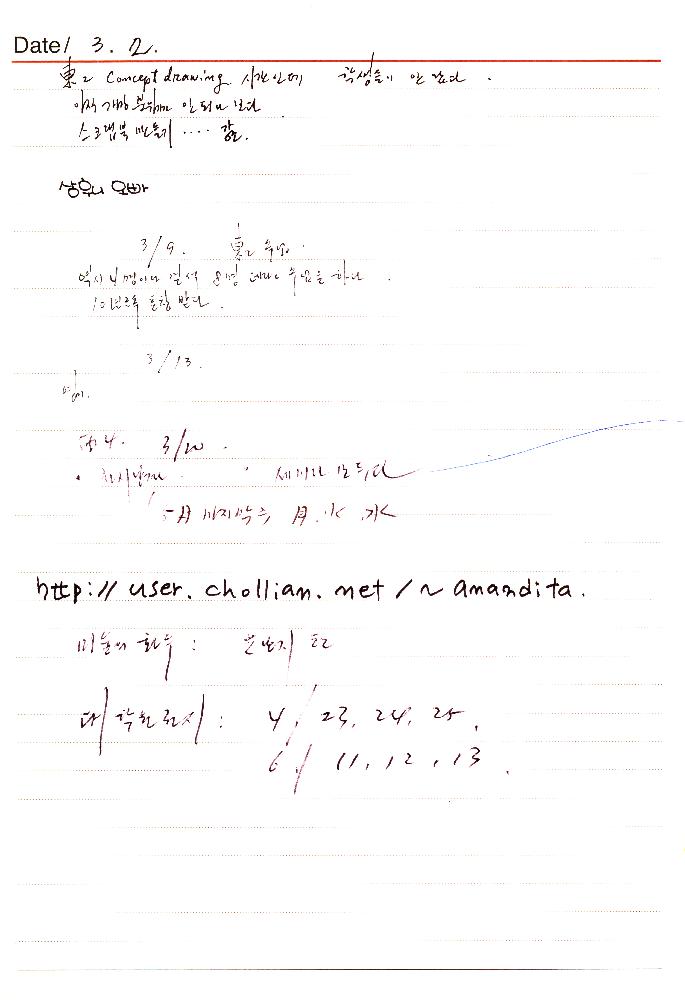 Date/ 3. 2.
東2 Concept drawing 시간인데 학생들이 안 왔다.
아직 개강 안 되나 보다
스크랩북 만들기 ....
상우니 오빠
3/9. 東2 수업.
역시 4명이나 결석 8명 데리고 수업을 하다.
받다.
3/13.
3/20.
세미나
5月 마지막주 月.水
http://user.chollian.net/~amandita.
미술의 화두 :
대학원 전시 : 4/ 23, 24, 25,
6/ 11, 12, 13.